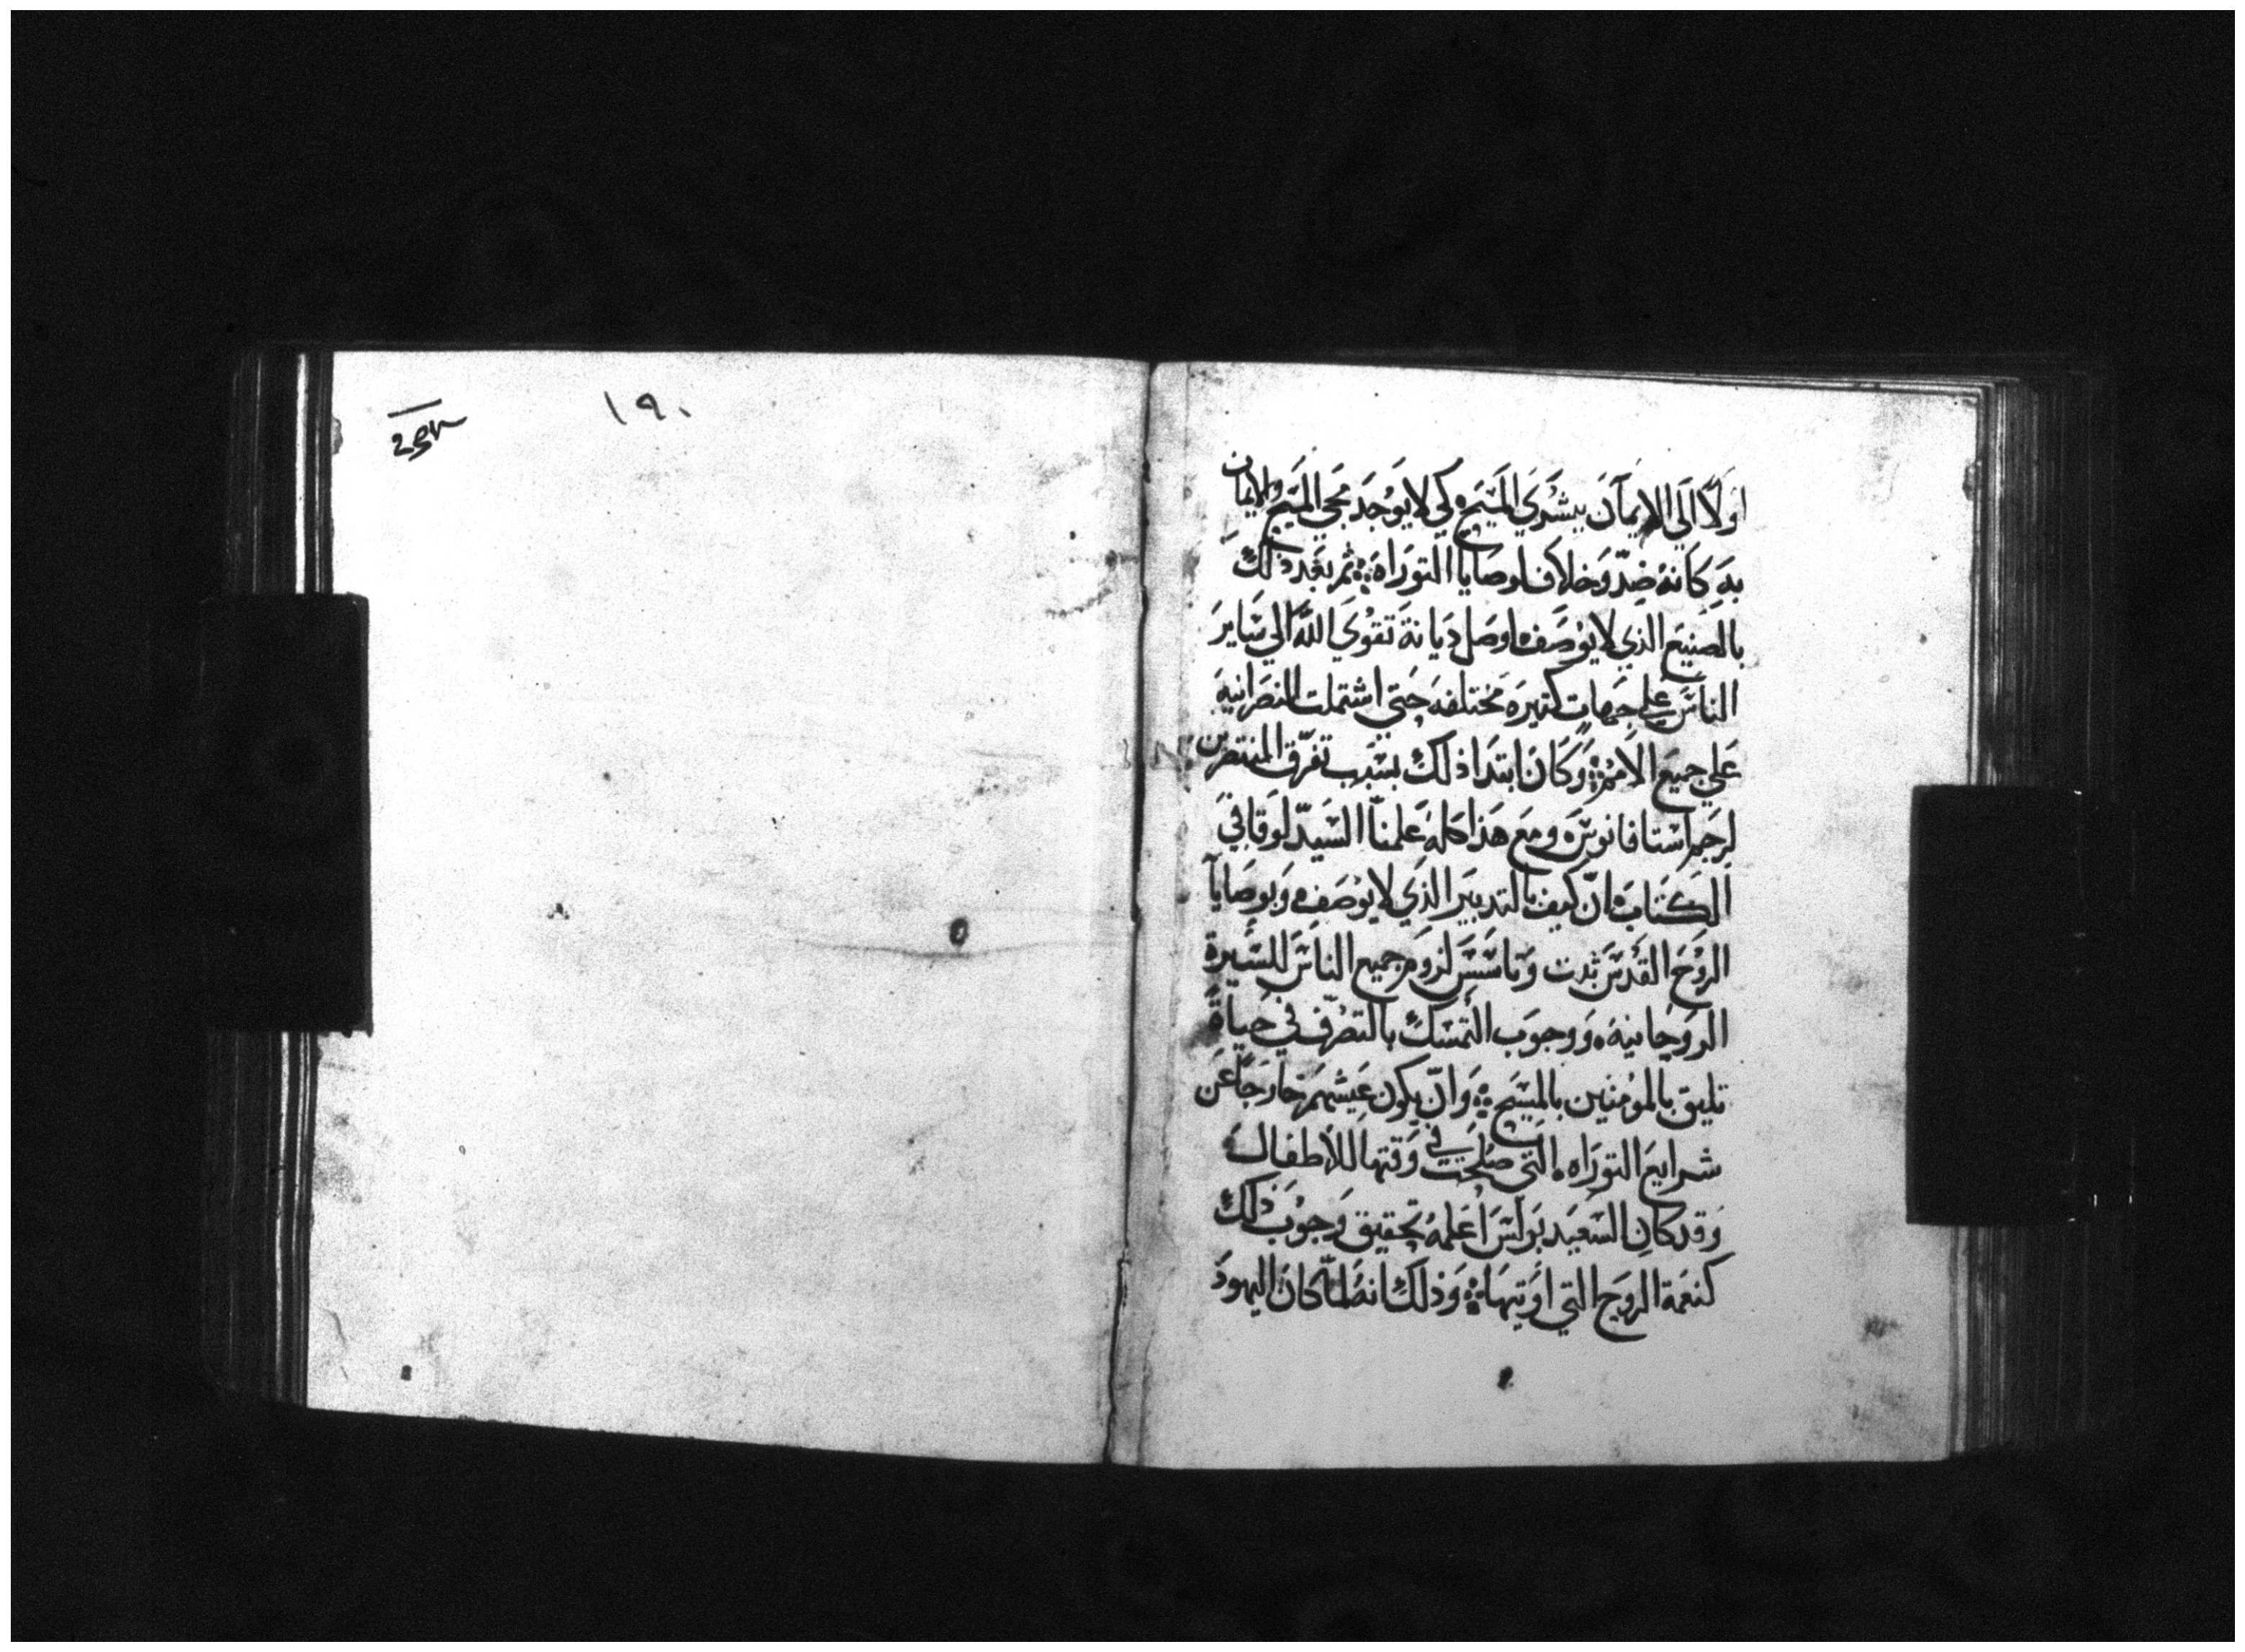 اولًا الَي الايمآنَ ببشرَيَ المَسَيح كي لا يوَجَد مجَي المسَيح والايمان
بهِ كانهُ ضِدّ وَخلاف لوصَايا التورَاة ثمر بعَد ذلكَ
بالصَنيعَ الذي لا يوُصَف اوصَل دَيانة تَقوَيَ اللَّه الي سَايرَ
الناسَ علي جهات كتيرَه مختلفه حَتي اشتملت النصَرانيةَ
عَلي جميعَ الامُمر وَكانَ ابتدَا ذلكَ بسَبب تفرّق المنتصرين
لرجَمر استافانوسَ ومعَ هذا كله عَلمنّا السَيدّ لوَقا في
الكتَابَ انّ كيف بالتدبيرَ الذَي لا يوُصَف وَبوصَايآ
الروُحَ القدُسَ ثبت وَتاسَسَ لزومَر جميع الناسَ للسَيرة
الروَحانيهَ ووجوَب التمسَك بالتصرّف في حَياةً
تليق بالموُمنين بالمسَيح وَانّ يكون عَيشهمَر خارجًا عَن
شرايعَ التورَاه التي صَلحَت في وَقتها للاطفالَ
وَقد كانَ السَعيَد بَولسَ اعَلمهُ تحقيق وَجوُبَ ذلكَ
كنعَمة الروَح التي اوَتيهَا وَذلكَ انهُ لمّا كانَ اليهودَ
١٩٠